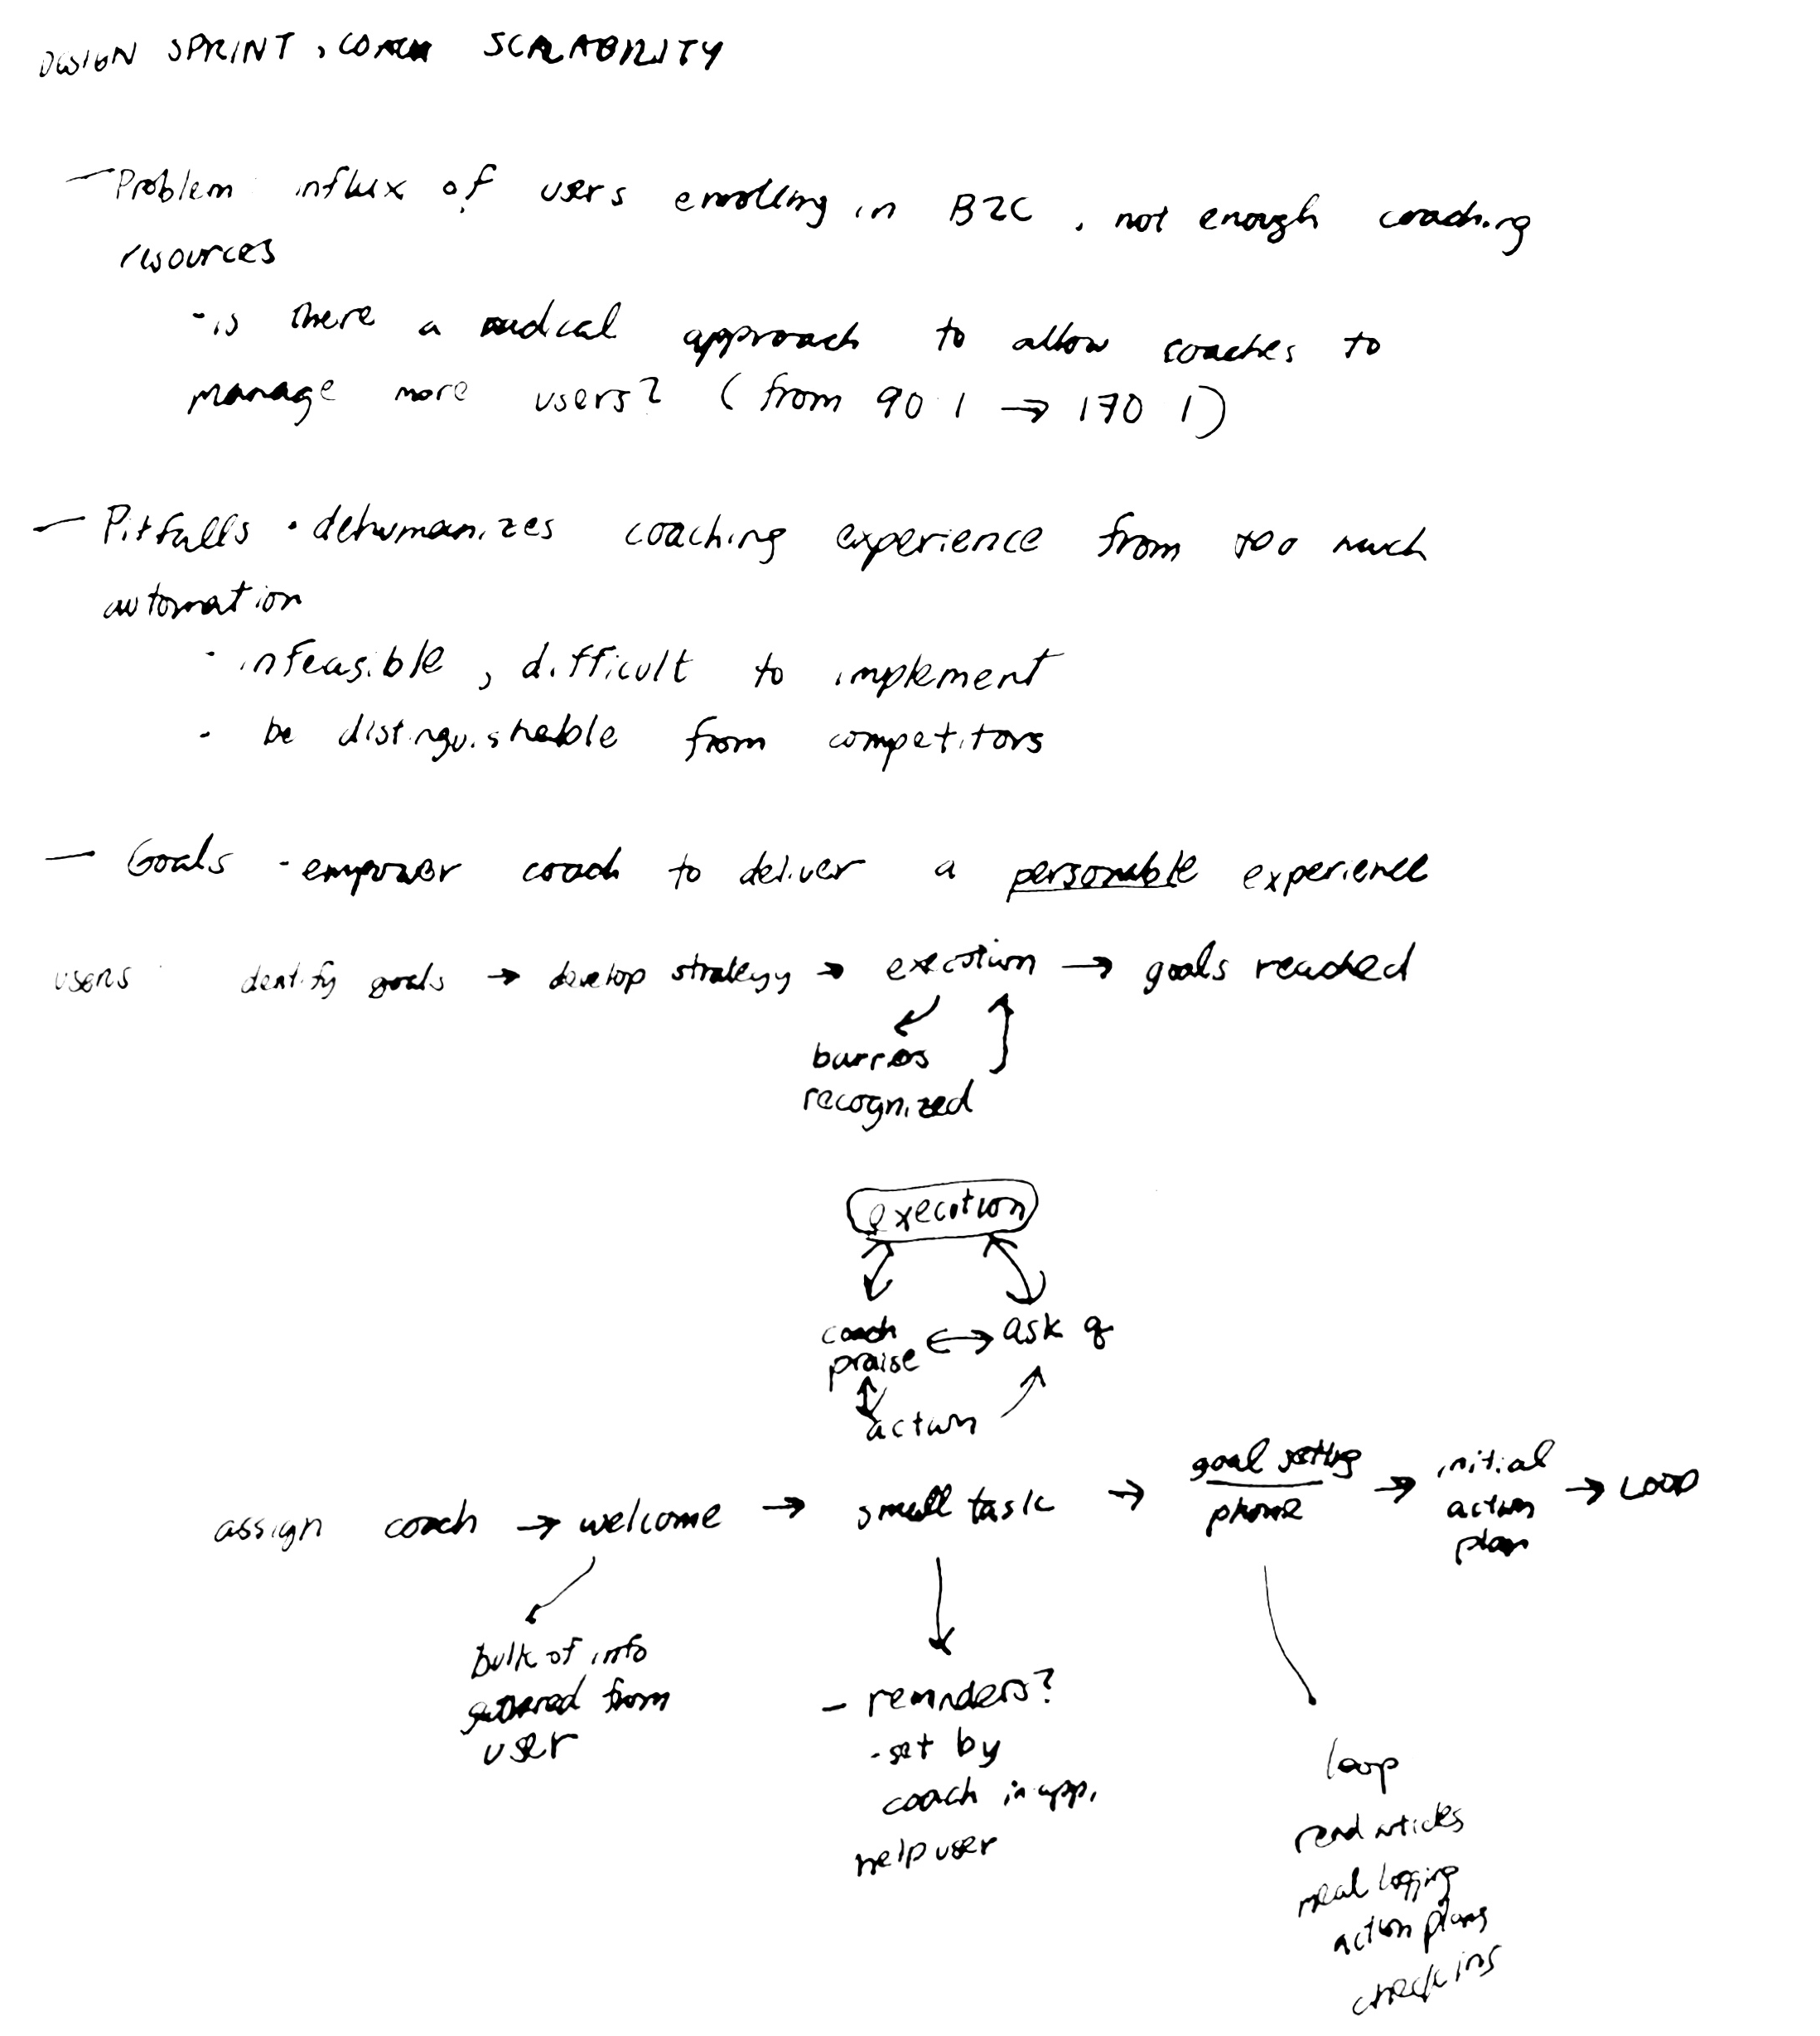 DESIGN SPRINT, COACH SCALABILITY
— Problem influx of users enrolling in B2C, not enough coaching
resources
- is there a radical approach to allow coaches to
manage more users? (from 90 1 → 170 1)
— Pitfalls • dehumanizes coaching experience from too much
automation
• infeasible, difficult to implement
• be distinguishable from competitors
— Goals - empower coach to deliver a personable experience
users identify goals → develop strategy → execution → goals reached
barriers
recognized
execution
coach ↔ ask q
praise
action
assign coach → welcome → small task → goal setting → initial → LOOP
phone action
plan
bulk of info
gathered from
user
- reminders?
- set by
coach in app,
help user
loop
read articles
meal logging
action plans
check ins